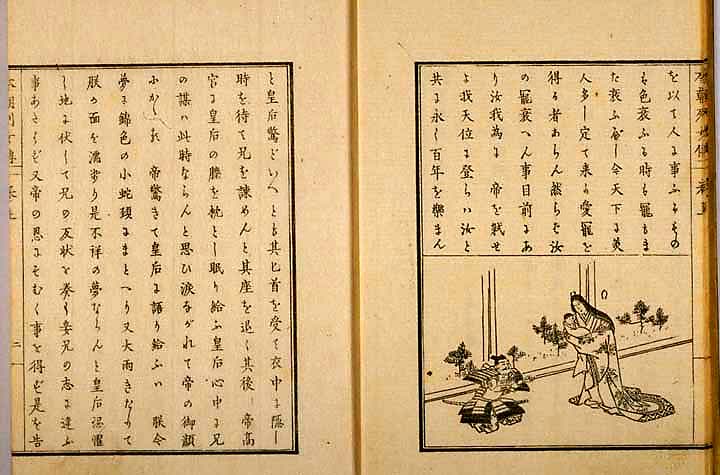 本朝列女傳
を以て人に事ふるもの
も色衰ふる時も寵もま
た衰ふ 今天下に美
人多し定て来り愛寵を
得る者あらん然らで汝
の寵衰へん事目前にあ
り汝我為に 帝を弑せ
よ我天位に登らハ汝と
共に永く百年を樂まん
と皇后驚といへとも其匕首を受て衣中に隠し
時を待て兄を諫めんと其座を退く其後 帝高
宮に皇后の膝を枕とし眠り給ふ皇后心中に兄
の謀ハ此時ならんと思ひ涙ながれて帝の御顔
ふかゝれ 帝驚きて皇后に語り給ふハ 朕今
夢に錦色の小蛇頚にまとへり又大雨きたりて
朕の面を濡せり是不祥の夢ならんと皇后恐懼
し地に伏して兄の反状を奏し妾兄の志に違ふ
事あたハず又帝の恩にそむく事を得ず是を告
本朝列女傳
二